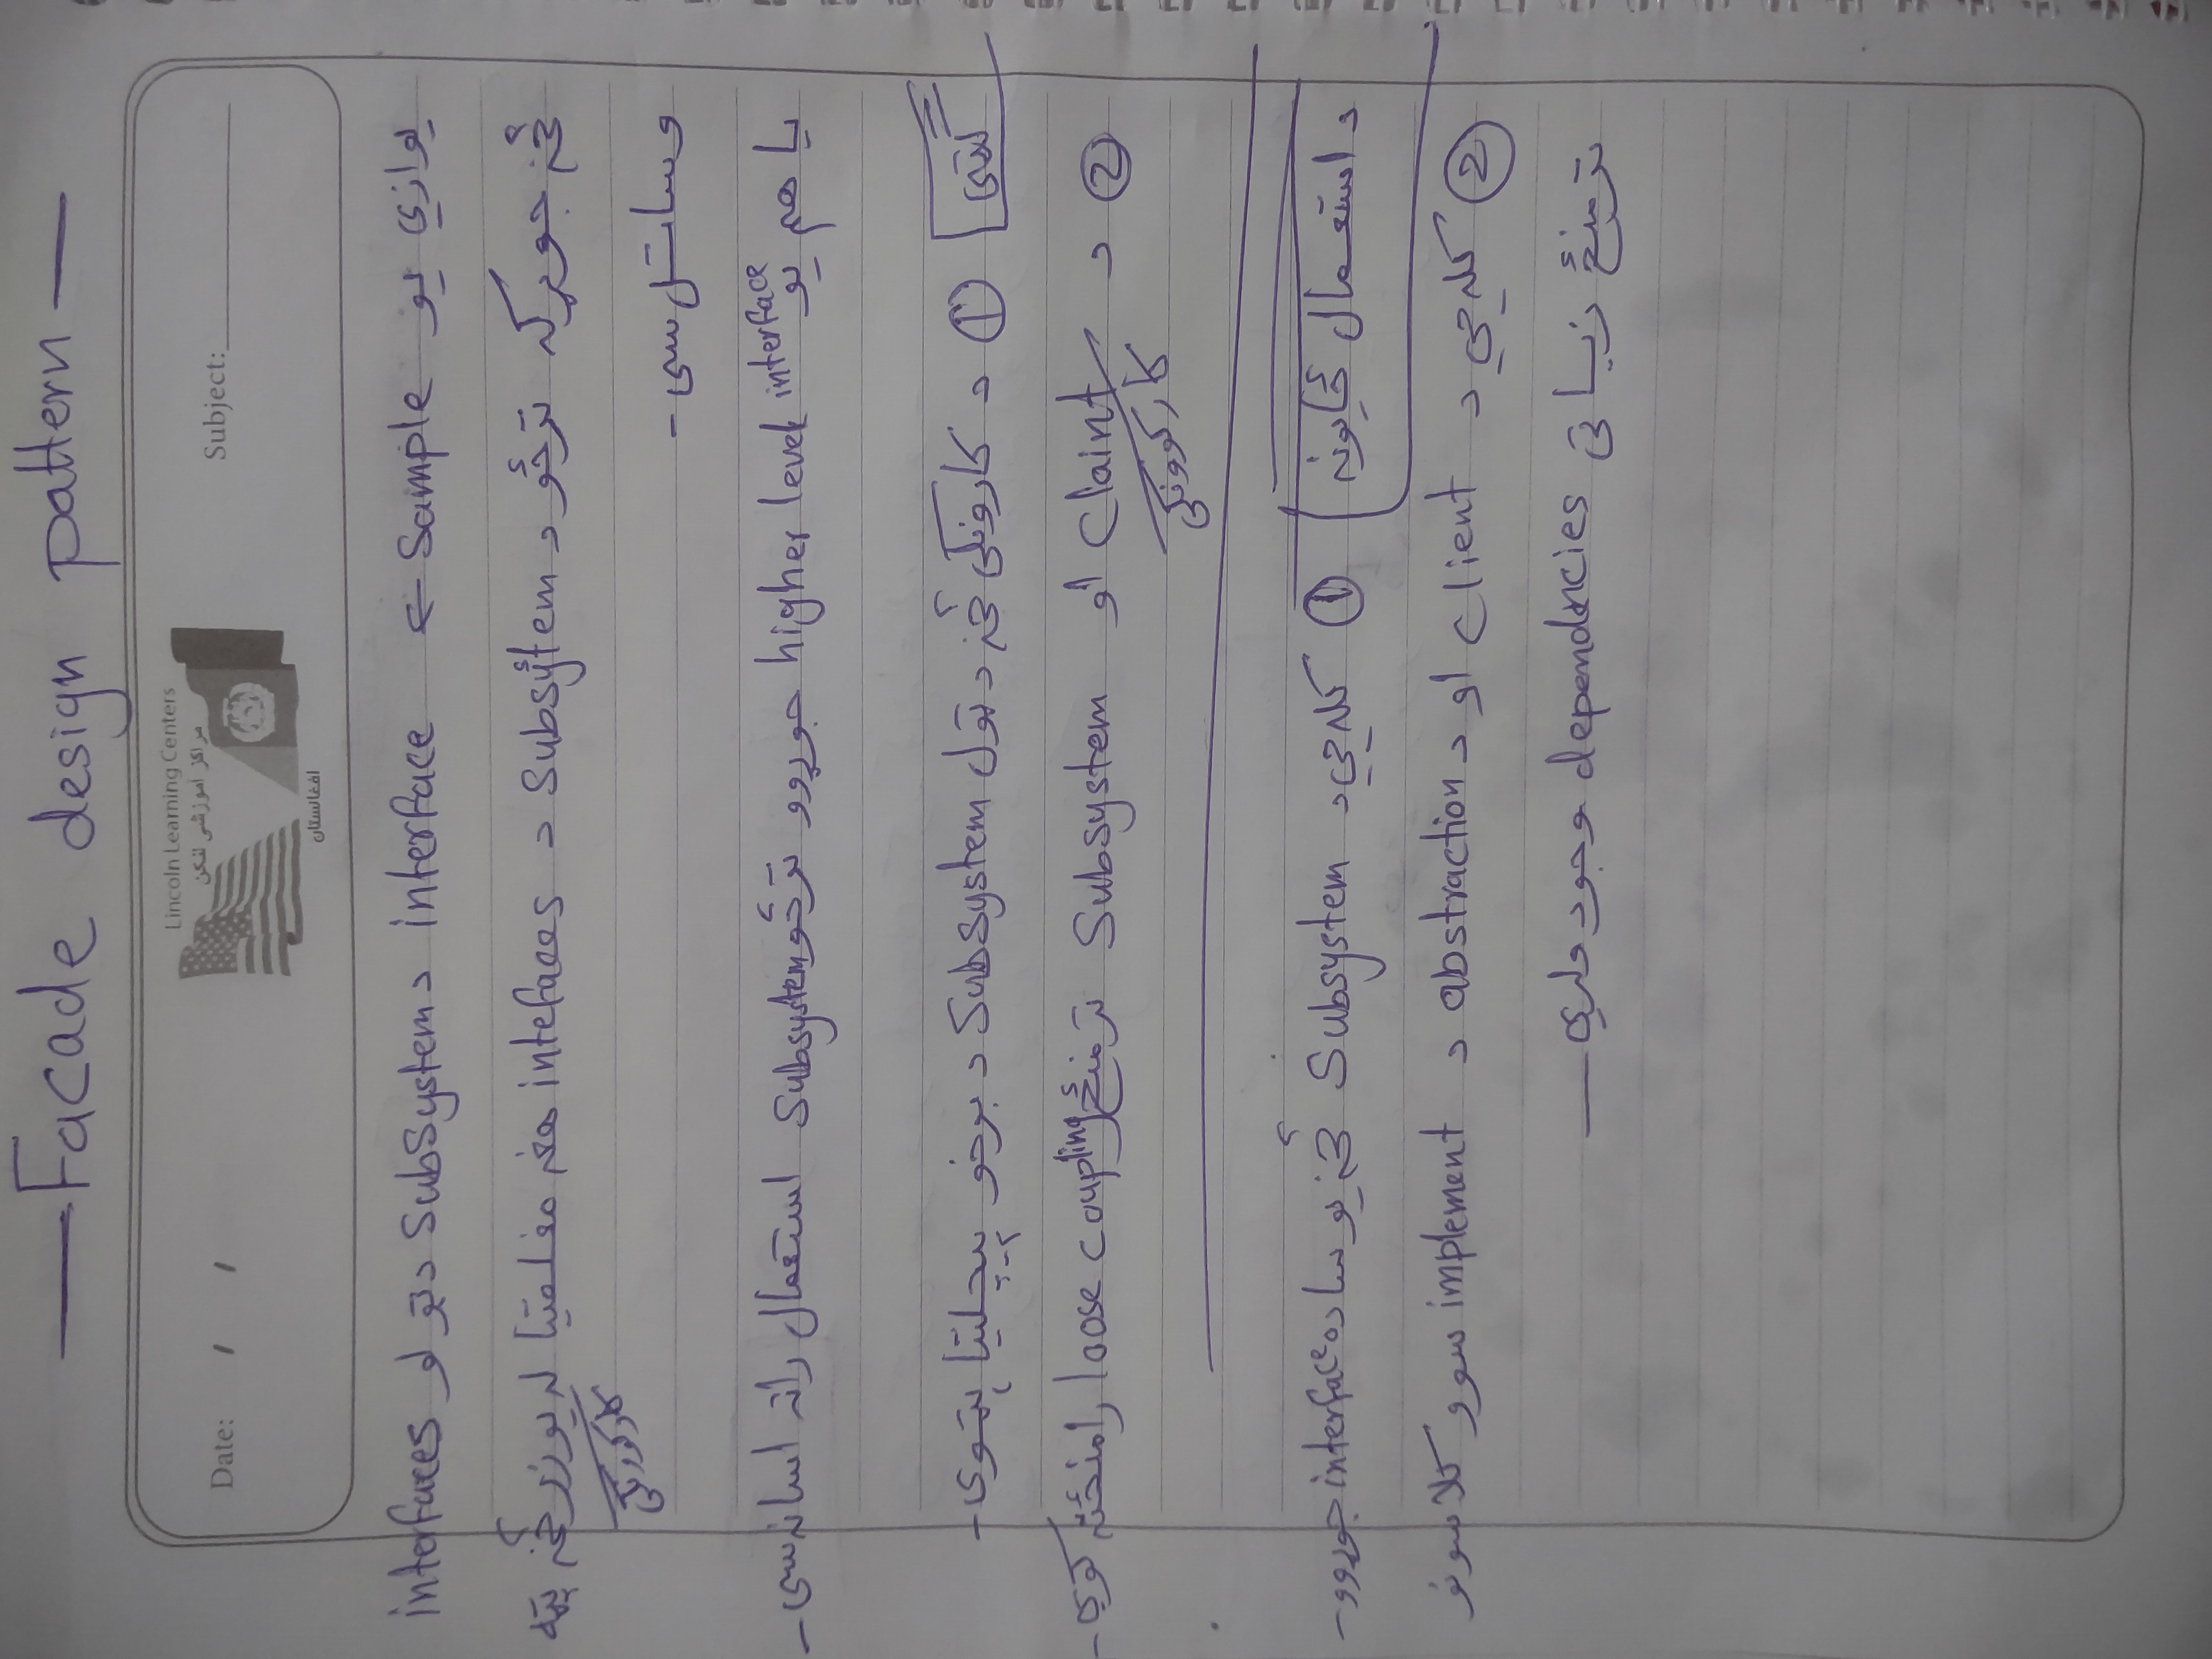 — Facade design pattern —
Lincoln Learning Centers
مراکز آموزشی لنکن
Date: / /
Subject:
افغانستان
یوازي یو Sample ← interface د Subsystem د ټولو interfaces
څخه جوړ که ترڅو د Subsystem د intefaces هغه مغلقتیا له یوزر څخه پټه
کارکوونکی
وساتل سی -
یا هم یو higher level interface جوړوو ترڅو Subsystem استعمال راته اسانه سی -
ګټی ① د کارونکی څخه د ټول Subsystem د برخو پیچلیتیا پټوی -
② د Claint او Subsystem ترمنځ loose coupling رامنځته کوي -
کارکوونکی
د استعمال ځایونه ① کله چي د Subsystem څخه یو ساده interface جوړوو -
② کله چي د client او د abstraction د implement سوو کلاسونو
ترمنځ زیاتی dependncies وجود ولري —